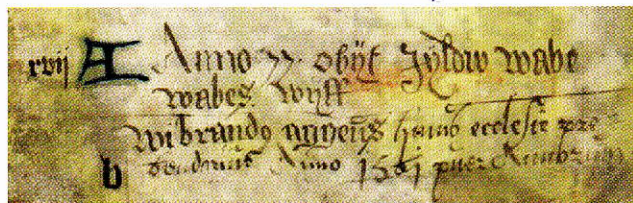 xvij A Anno 77 obijt Jyldw wabe
wabes wyff
wibrandus aggeus hanc ecclesie pre
b bendarius Anno 1561 puer